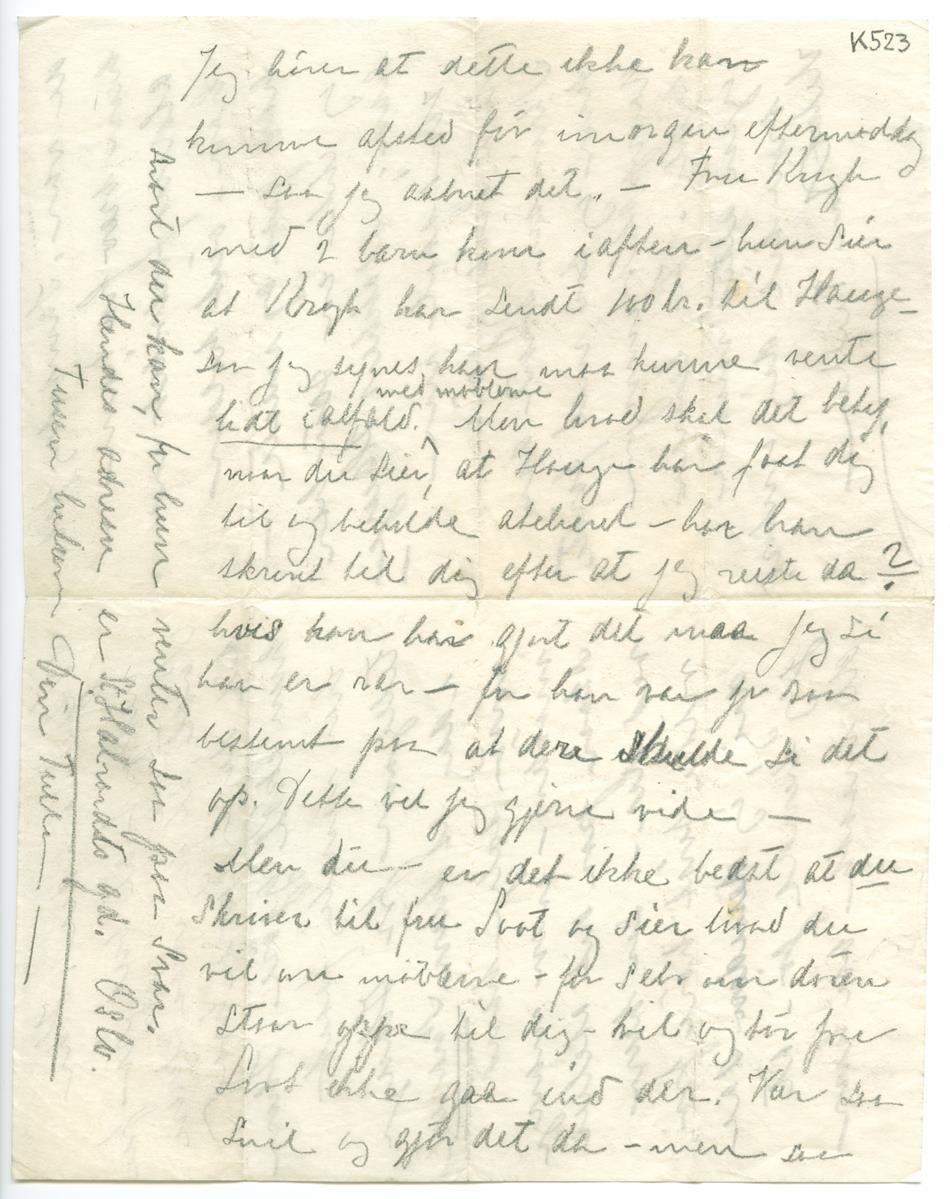 K523
Jeg hører at dette ikke kan
komme afsted før imorgen eftermiddag
— saa jeg aabnet det. — Fru Krogh
med 2 barn kom iaften – hun sier
at Krogh har sendt 100 kr. til Hauge –
saa jeg synes han maa kunne vente
med møblerne
lidt ialfald. Men hvad skal det bety,
naar du sier, at Hauge har faat dig
til og beholde atelieret – har han
skrevet til dig efter at jeg reiste da?
hvis han har gjort det maa jeg si
han er rar – for han var jo saa
bestemt paa at dere skulde si det
op. Dette vil jeg gjerne vide —
Men du – er det ikke bedst at du
skriver til fru Soot og sier hvad du
vil om møblerne – for selv om døren
staar oppe til dig – vil og bør fru
Soot ikke gaa ind der. Vær saa
snil og gjør det da – men saa
snart du kan, for hun venter saa paa svar.
Hendes adresse er St. Halvardsgd. Oslo.
Tusen hilsen Din Tulla —